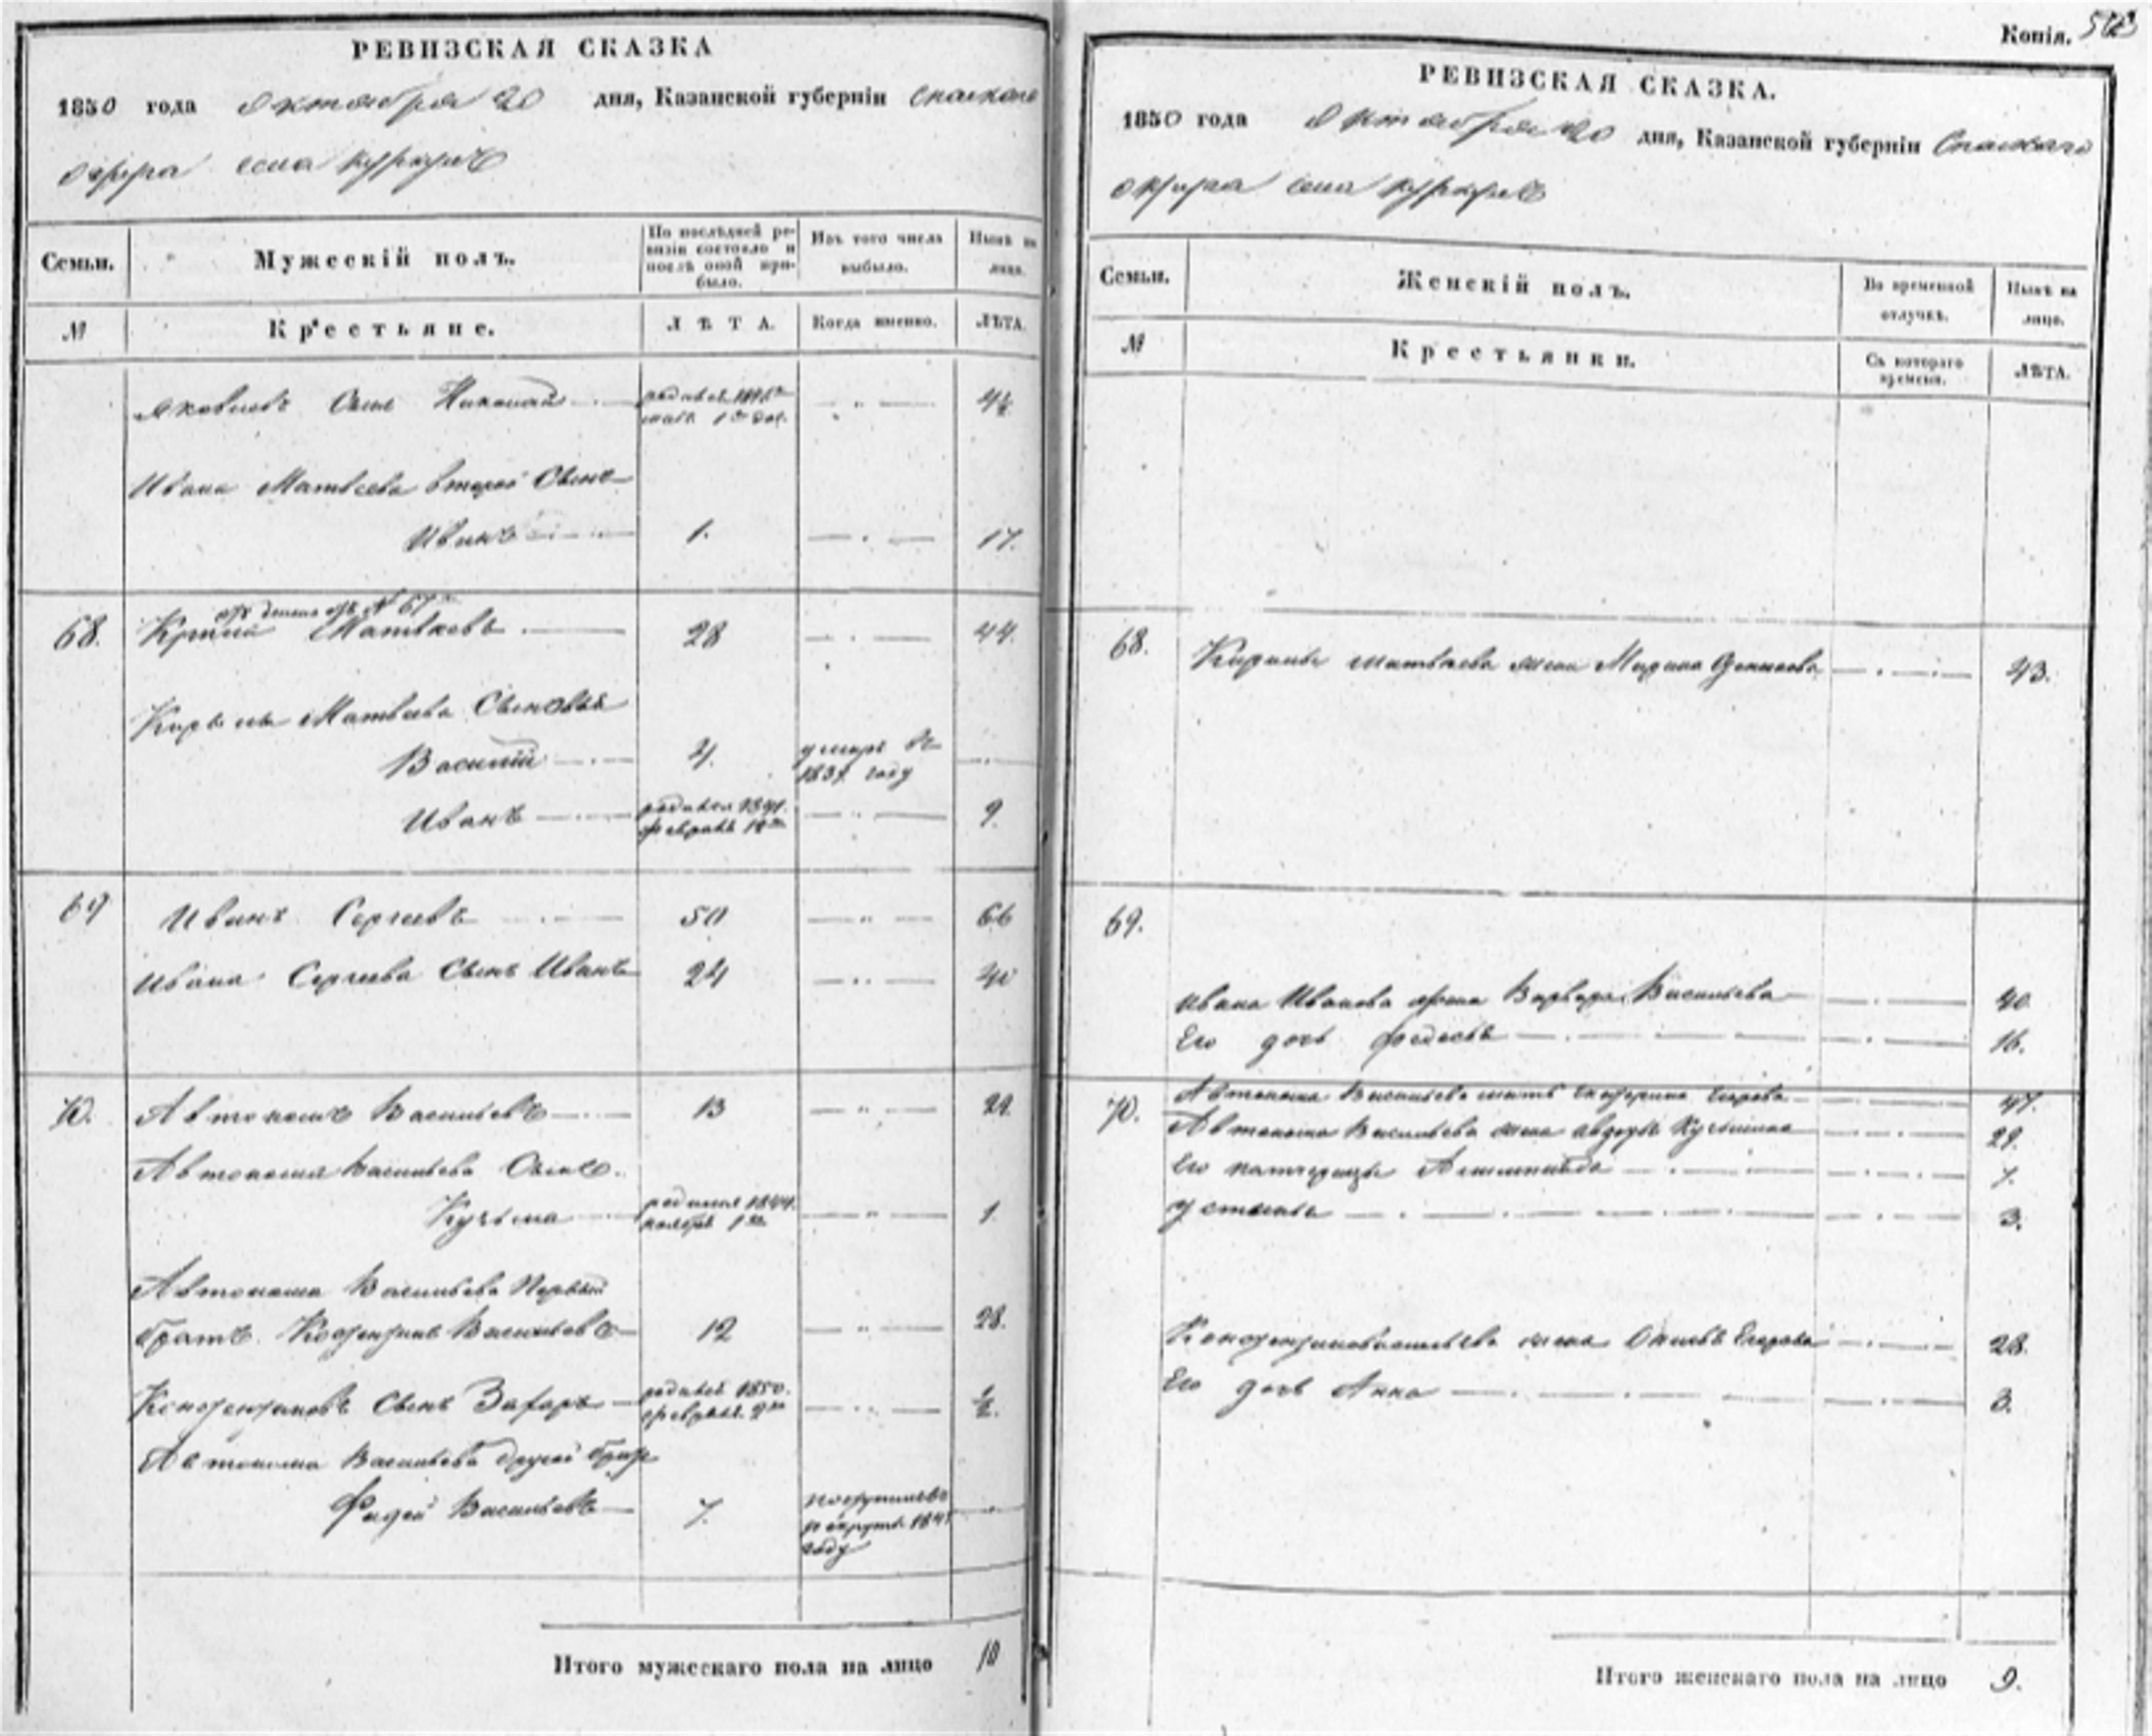 РЕВИЗСКАЯ СКАЗКА
1850 года октября 20 дня, Казанской губерніи Спаскаго
округа села
Семьи.
Мужескій полъ.
По послѣдней ревизіи состояло и послѣ оной прибыло.
Изъ того числа выбыло.
Нынѣ на лицо.
№
Крестьяне.
ЛѢТА.
Когда именно.
ЛѢТА.
Яковлевъ Сынъ Николай родился 4½
Ивана Матвеева второй Сынъ
Иванъ 1. 17.
отделенъ отъ № 67
68. Матвѣевъ 28 44.
Матвѣева Сыновья
Василій 4. умеръ въ
году
Иванъ родился 1841. февраля 9.
69 Иванъ Сергеевъ 50 66
Ивана Сергеева Сынъ Иванъ 24 40
70. Автономъ Васильевъ 13 29
Автонома Васильева Сынъ.
Кузьма ноября 1. 1.
Автонома Васильева Первый
братъ Васильевъ 12 28.
Сынъ Захаръ родился 1850. февраля ½.
Автонома Васильева другой братъ
Фадей Васильевъ 7.
году
Итого мужескаго пола на лицо 10
Копія.
РЕВИЗСКАЯ СКАЗКА.
1850 года октября 20 дня, Казанской губерніи Спаскаго
округа села
Семьи.
Женскій полъ.
Во временной отлучкѣ.
Нынѣ на лицо.
№
Крестьянки.
Съ котораго времени.
ЛѢТА.
68. матвѣева жена Марина Денисова 43.
69.
Ивана Иванова жена Варвара Васильева 40
Его дочь Федосья 16.
70. Автонома Васильева мать Екатерина Егорова 47.
Автонома Васильева жена авдотья Кузьмина 29.
Его 7.
устинья 3.
жена Егорова 28.
Его дочь Анна 3.
Итого женскаго пола на лицо 9.